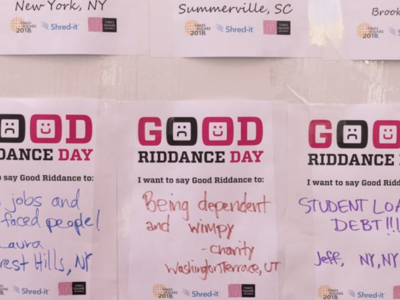 New York, NY
Summerville, SC
Brook
2018 Shred-it
2018 Shred-it
2018
GOOD
RIDDANCE DAY
I want to say Good Riddance to:
jobs and
faced people!
Laura
rest Hills, NY
Shred-it
GOOD
RIDDANCE DAY
I want to say Good Riddance to:
Being dependent
and wimpy
- Charity
Washington Terrace, UT
2018 Shred-it
GOOD
RIDDANCE D
I want to say Good Riddance
STUDENT LOA
DEBT!!!
Jeff, NY, NY
2018 Shred-it